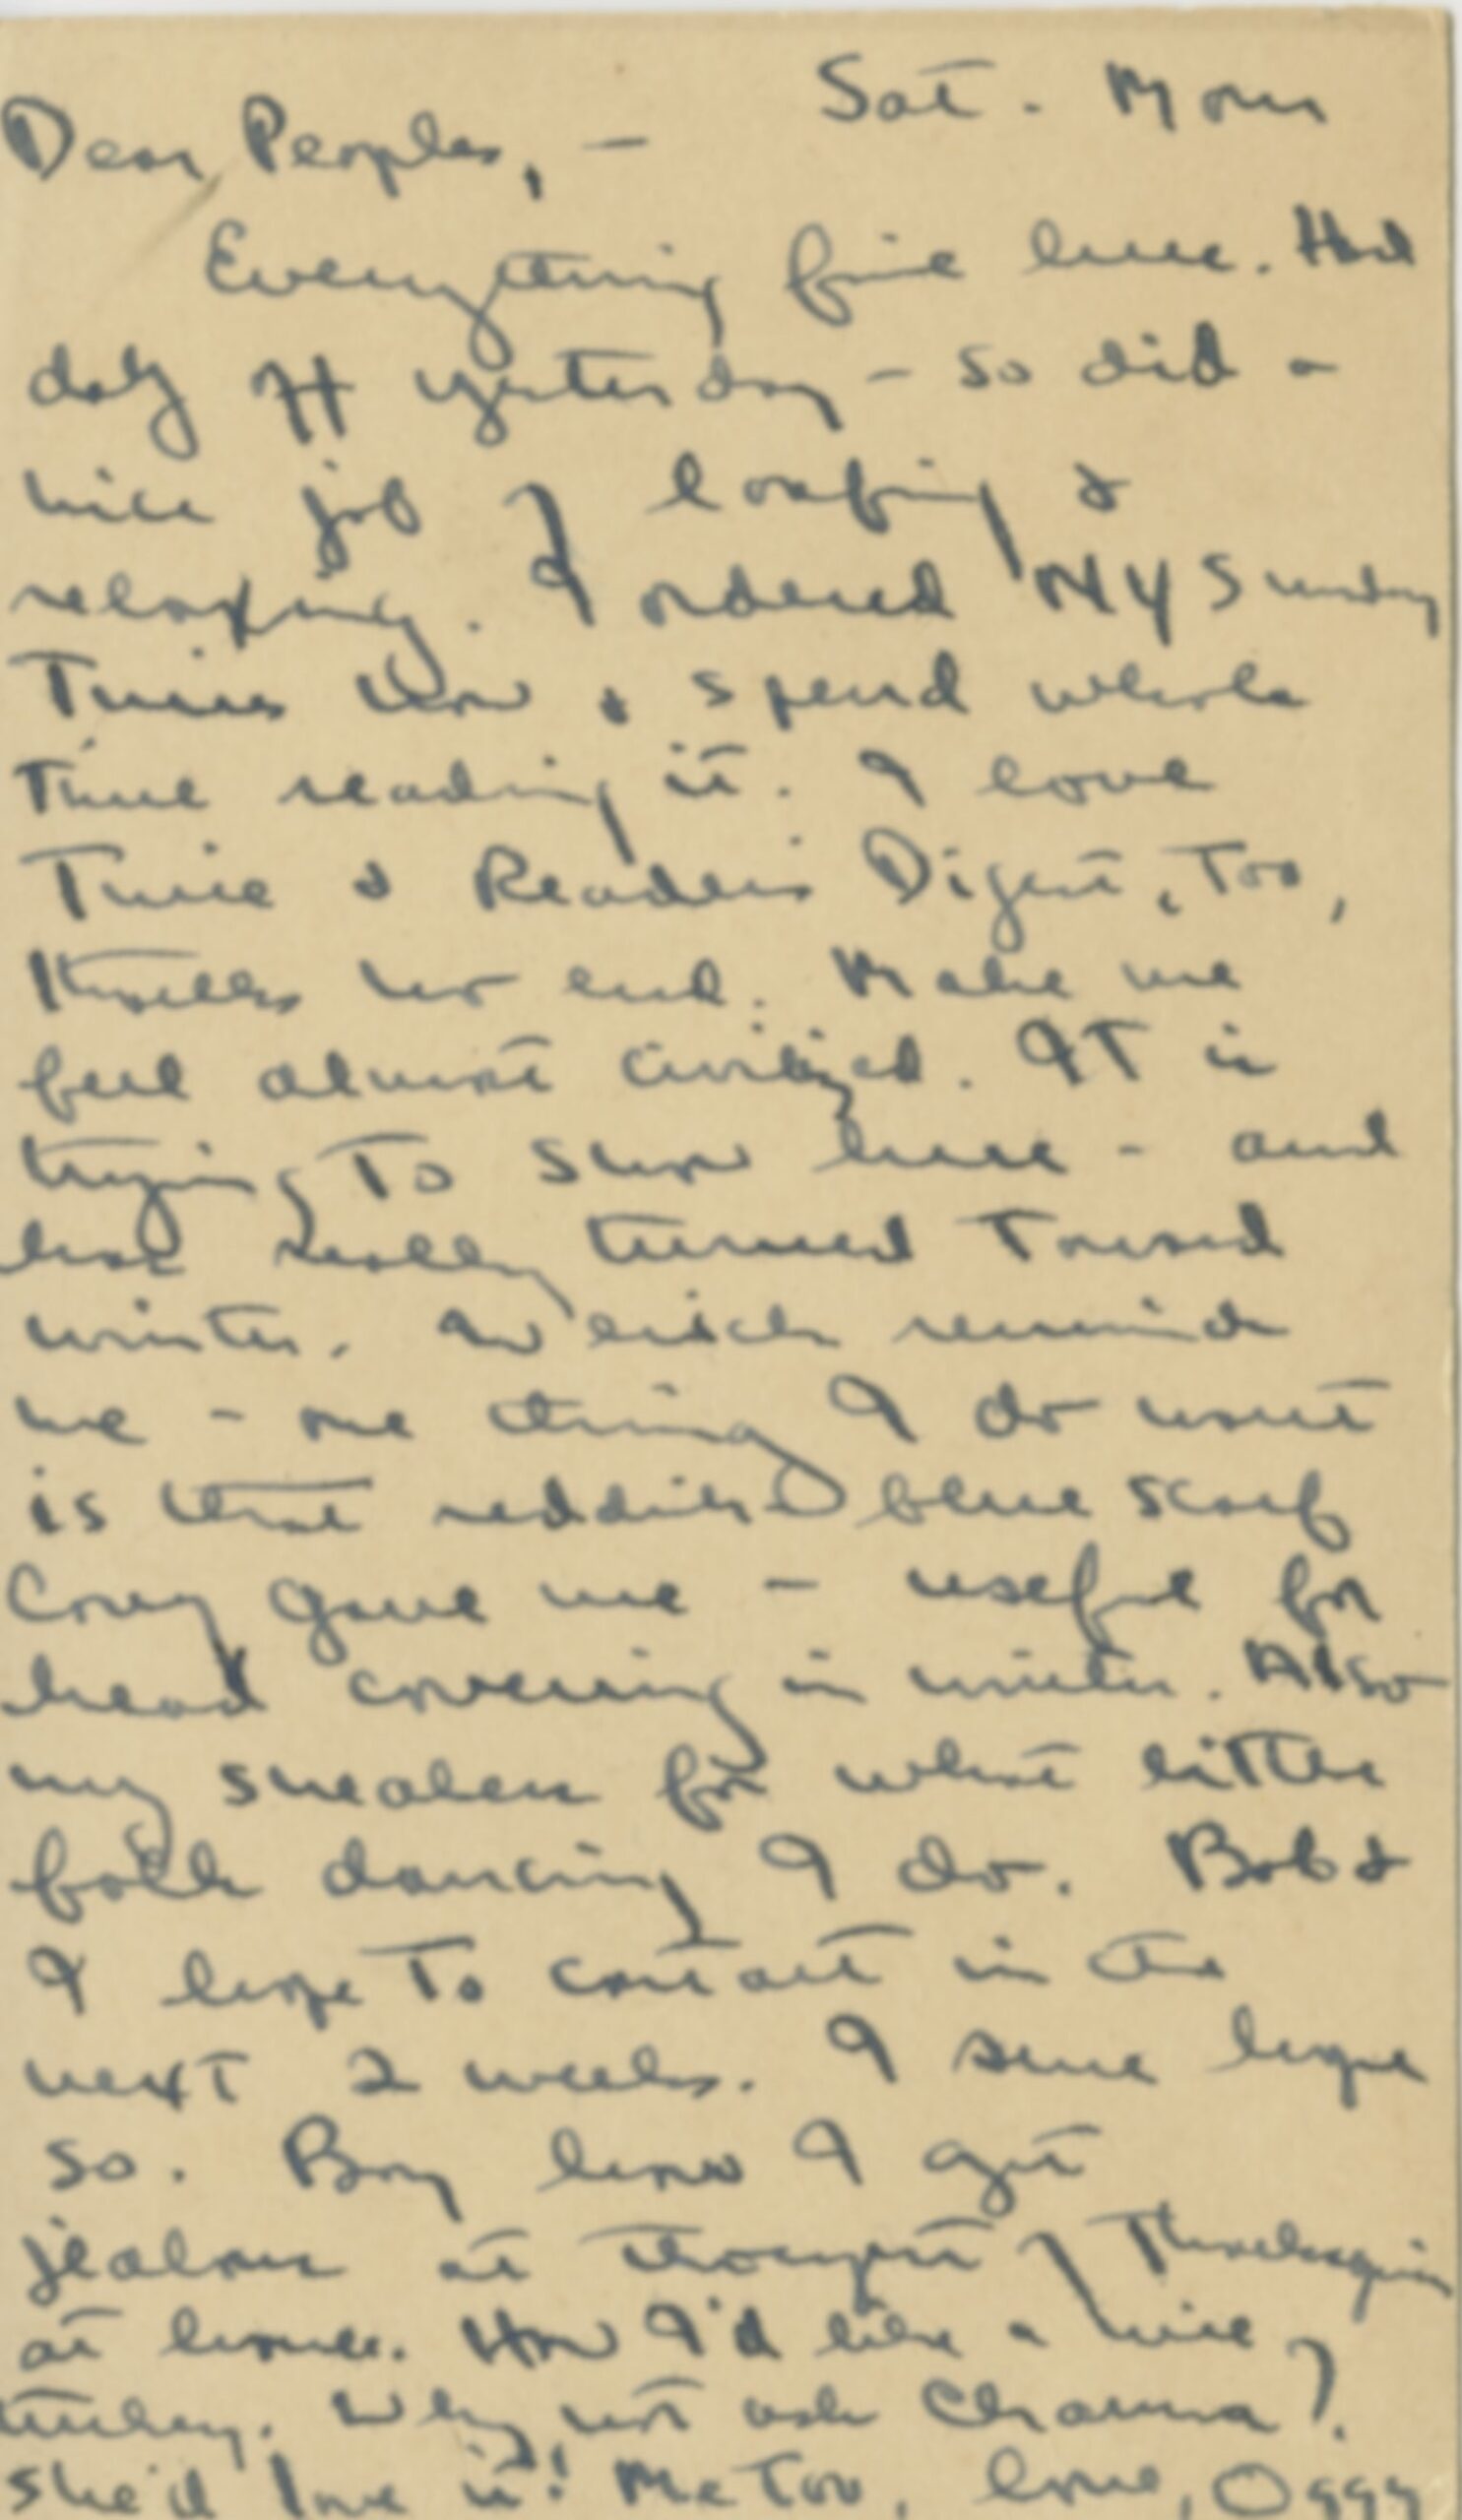 Sat. Morn
Dear Peoples, -
Everything fine here. Had
day off yesterday - so did a
nice job of loafing &
relaxing. I ordered NY Sunday
Times now & spend whole
time reading it. I love
Time & Readers Digest, too,
thrills no end. Make me
feel almost civilized. It is
trying to snow here - and
has really turned toward
winter. Which reminds
me - one thing I do want
is that reddish blue scarf
Corey gave me - useful for
head covering in winter. Also
my sneakers for what little
folk dancing I do. Bob &
I hope to contact in the
next 2 weeks. I sure hope
so. Boy how I get
jealous at thought of Thanksgiving
at home. How I'd like a nice
turkey. Why not ask Channa?
She'd love it! Me too, love, Oggy